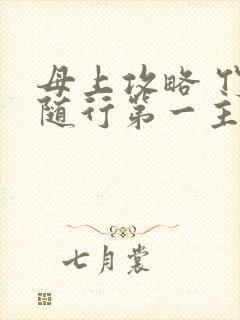 母上攻略
随行第一主
七月裳